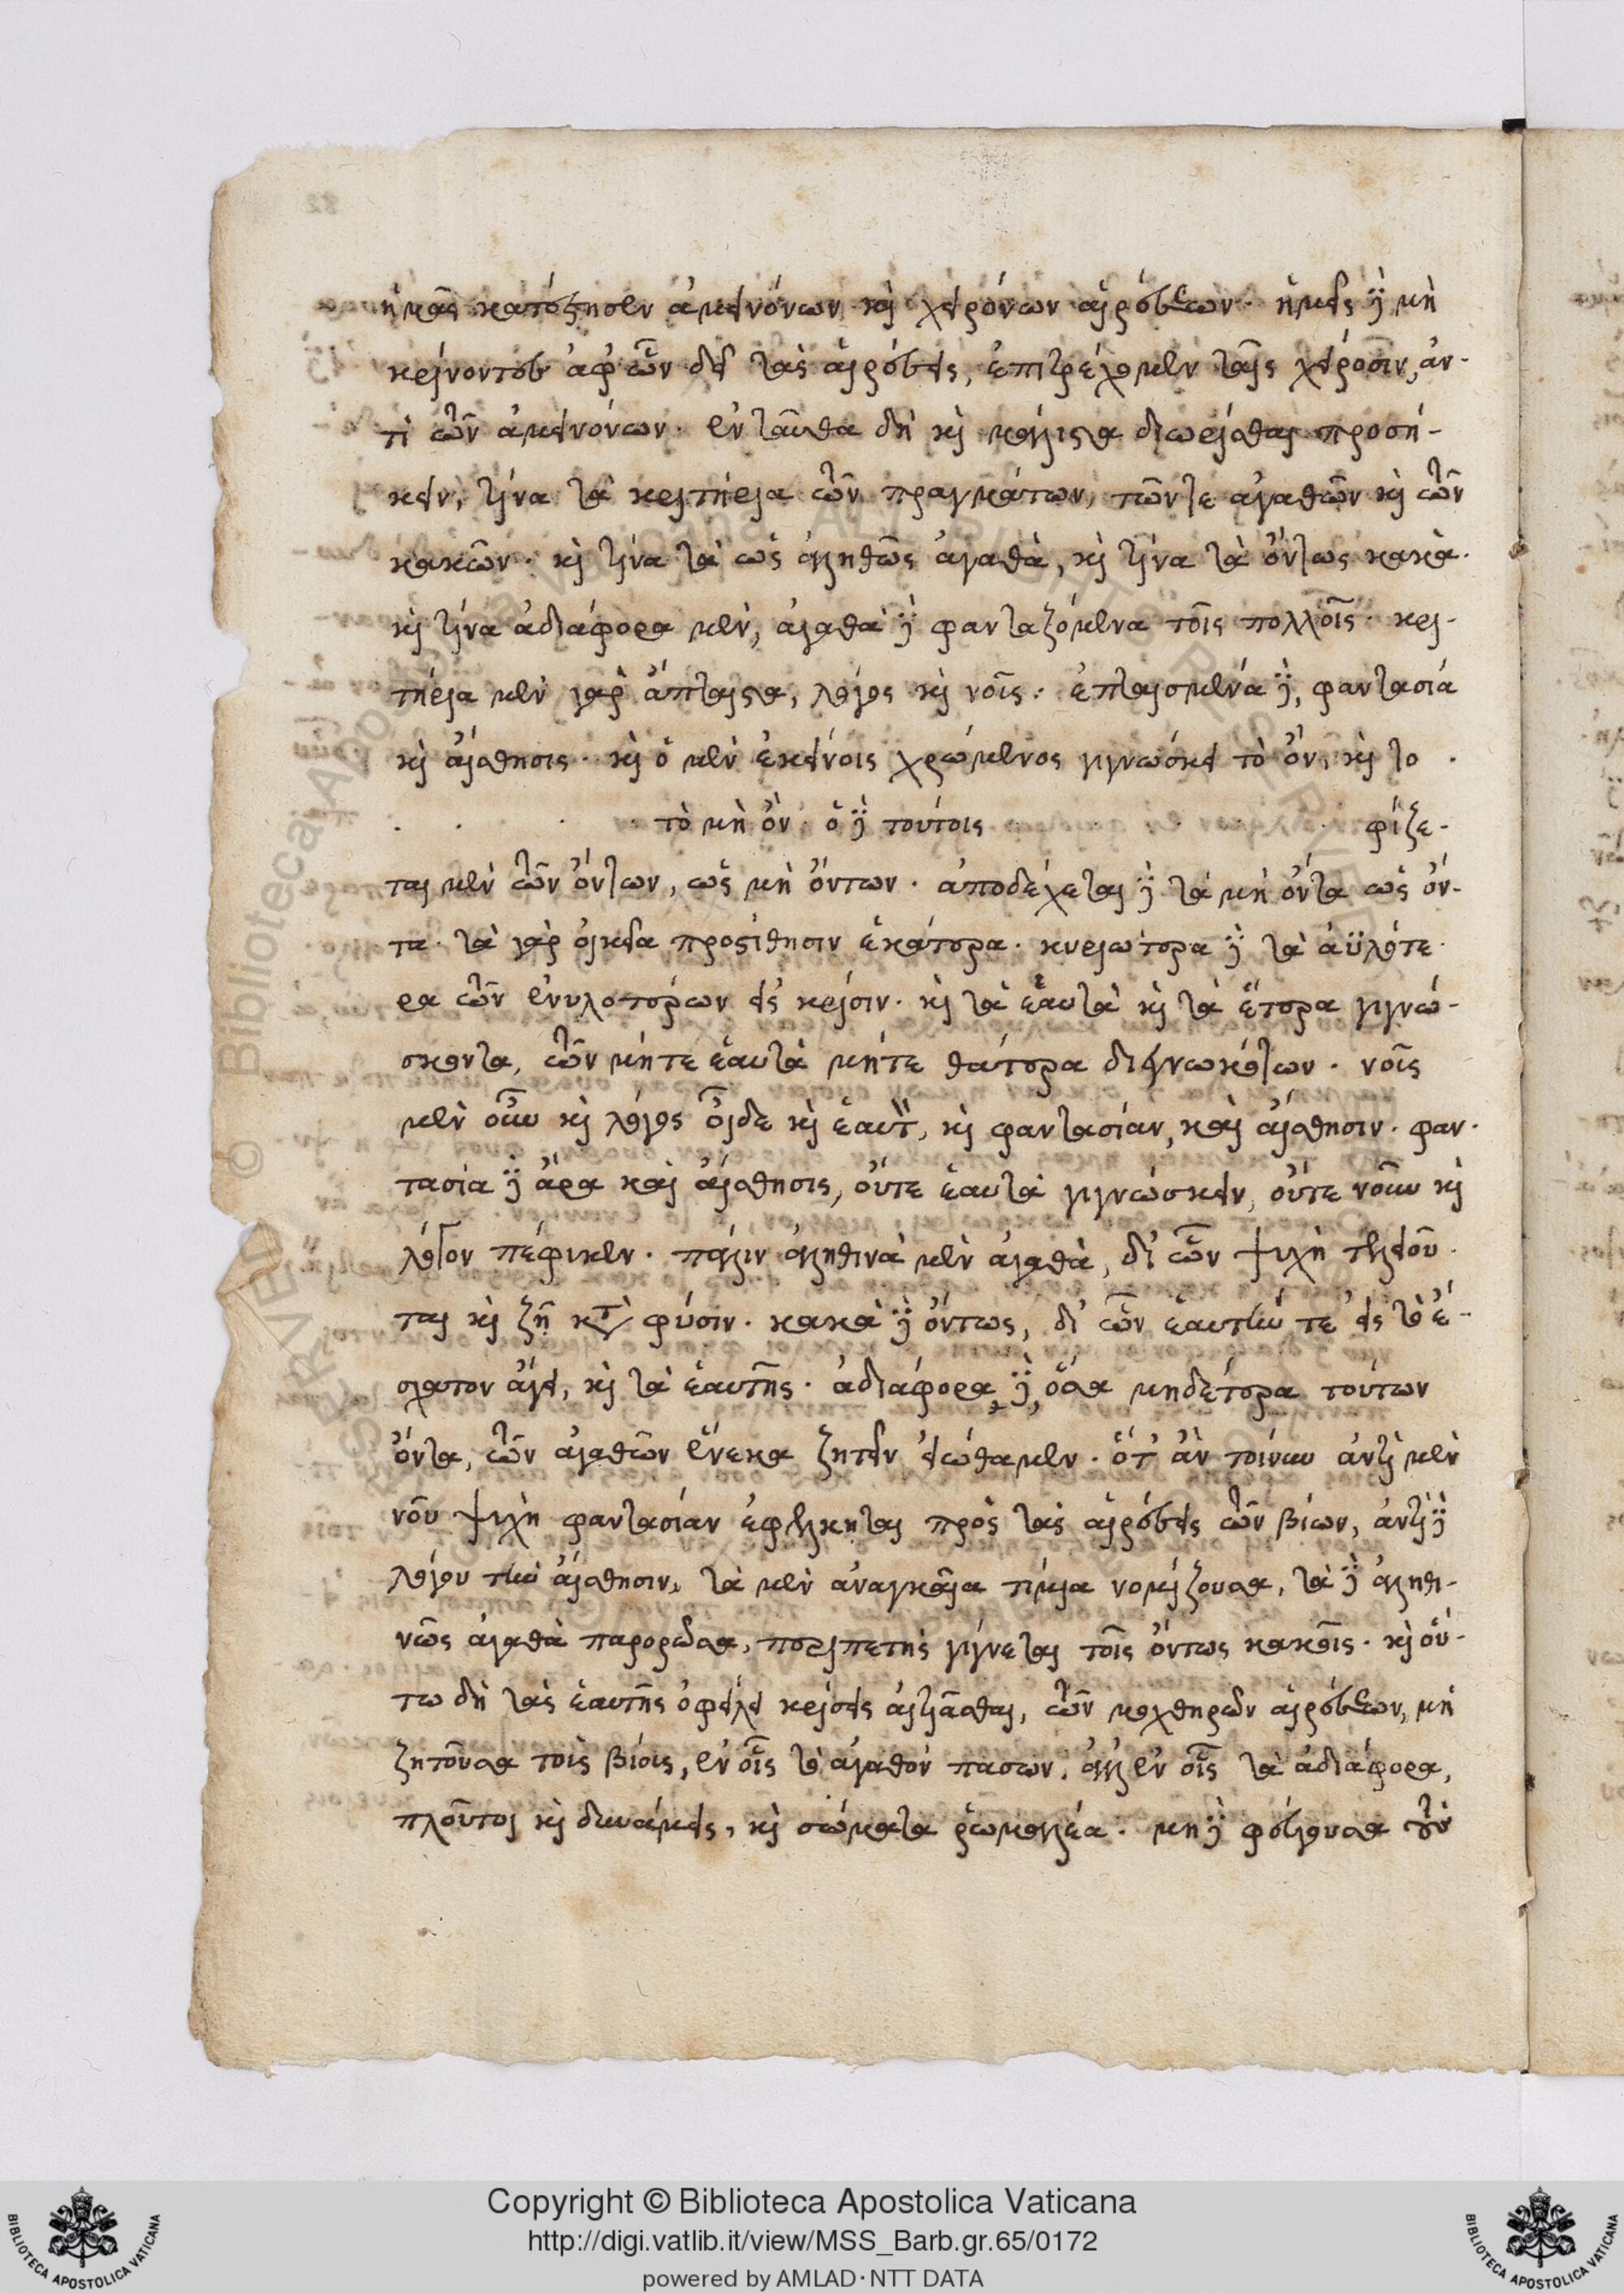 ἡμᾶς κατέστησεν ἀμεινόνων καὶ χειρόνων αἱρέσεων. ἡμεῖς δὲ μὴ
κρίνοντες ἀφ' ὧν δεῖ τὰς αἱρέσεις, ἐπιτρέχομεν ταῖς χείροσιν, ἀν-
τὶ τῶν ἀμεινόνων. ἐνταῦθα δὴ καὶ μάλιστα διωρίσθαι προσή-
κειν, τίνα τὰ κριτήρια τῶν πραγμάτων, τῶν τε ἀγαθῶν καὶ τῶν
κακῶν. καὶ τίνα τὰ ὡς ἀληθῶς ἀγαθὰ, καὶ τίνα τὰ ὄντως κακὰ.
καὶ τίνα ἀδιάφορα μὲν, ἀγαθὰ δὲ φανταζόμενα τοῖς πολλοῖς. κρι-
τήρια μὲν γὰρ ἄπταιστα, λόγος καὶ νοῦς. ἐπταισμένα δὲ, φαντασία
καὶ αἴσθησις. καὶ ὁ μὲν ἐκείνοις χρώμενος γιγνώσκει τὸ ὂν, καὶ το .
. . . τὸ μὴ ὂν. ὁ δὲ τούτοις φίζε-
ται μὲν τῶν ὄντων, ὡς μὴ ὄντων. ἀποδέχεται δὲ τὰ μὴ ὄντα ὡς ὄν-
τα. τὰ γὰρ οἰκεῖα προστίθησιν ἑκάτερα. κυριώτερα δὲ τὰ ἀϋλότε-
ρα τῶν ἐνυλοτέρων εἰς κρίσιν. καὶ τὰ ἑαυτὰ καὶ τὰ ἕτερα γιγνώ-
σκοντα, τῶν μήτε ἑαυτὰ μήτε θάτερα διεγνωκότων. νοῦς
μὲν οὖν καὶ λόγος οἶδε καὶ ἑαυτὸ, καὶ φαντασίαν, καὶ αἴσθησιν. φαν-
τασία δὲ ἄρα καὶ αἴσθησις, οὔτε ἑαυτὰ γιγνώσκειν, οὔτε νοῦν καὶ
λόγον πέφυκεν. πάλιν ἀληθινὰ μὲν ἀγαθὰ, δι' ὧν ψυχὴ τελειοῦ-
ται καὶ ζῇ κατὰ φύσιν. κακὰ δὲ ὄντως, δι' ὧν ἑαυτήν τε εἰς τὸ ἔ-
σχατον ἄγει, καὶ τὰ ἑαυτῆς. ἀδιάφορα δὲ, ὅσα μηδέτερα τούτων
ὄντα, τῶν ἀγαθῶν ἕνεκα ζητεῖν εἰώθαμεν. ὅτ' ἂν τοίνυν ἀντὶ μὲν
νοῦ ψυχὴ φαντασίαν ἐφέλκηται πρὸς τὰς αἱρέσεις τῶν βίων, ἀντὶ δὲ
λόγου τὴν αἴσθησιν, τὰ μὲν ἀναγκαῖα τίμια νομίζουσα, τὰ δὲ ἀληθι-
νῶς ἀγαθὰ παρορῶσα, περιπετὴς γίγνεται τοῖς ὄντως κακοῖς. καὶ οὕ-
τω δὴ τὰς ἑαυτῆς ὀφείλει κρίσεις αἰτιᾶσθαι, τῶν μοχθηρῶν αἱρέσεων, μὴ
ζητοῦσα τοῖς βίοις, ἐν οἷς τὸ ἀγαθὸν πασων, ἀλλ' ἐν οἷς τὰ ἀδιάφορα,
πλοῦτοι καὶ δυνάμεις, καὶ σώματα ῥωμαλέα. μὴ δὲ φεύγουσα τὸν